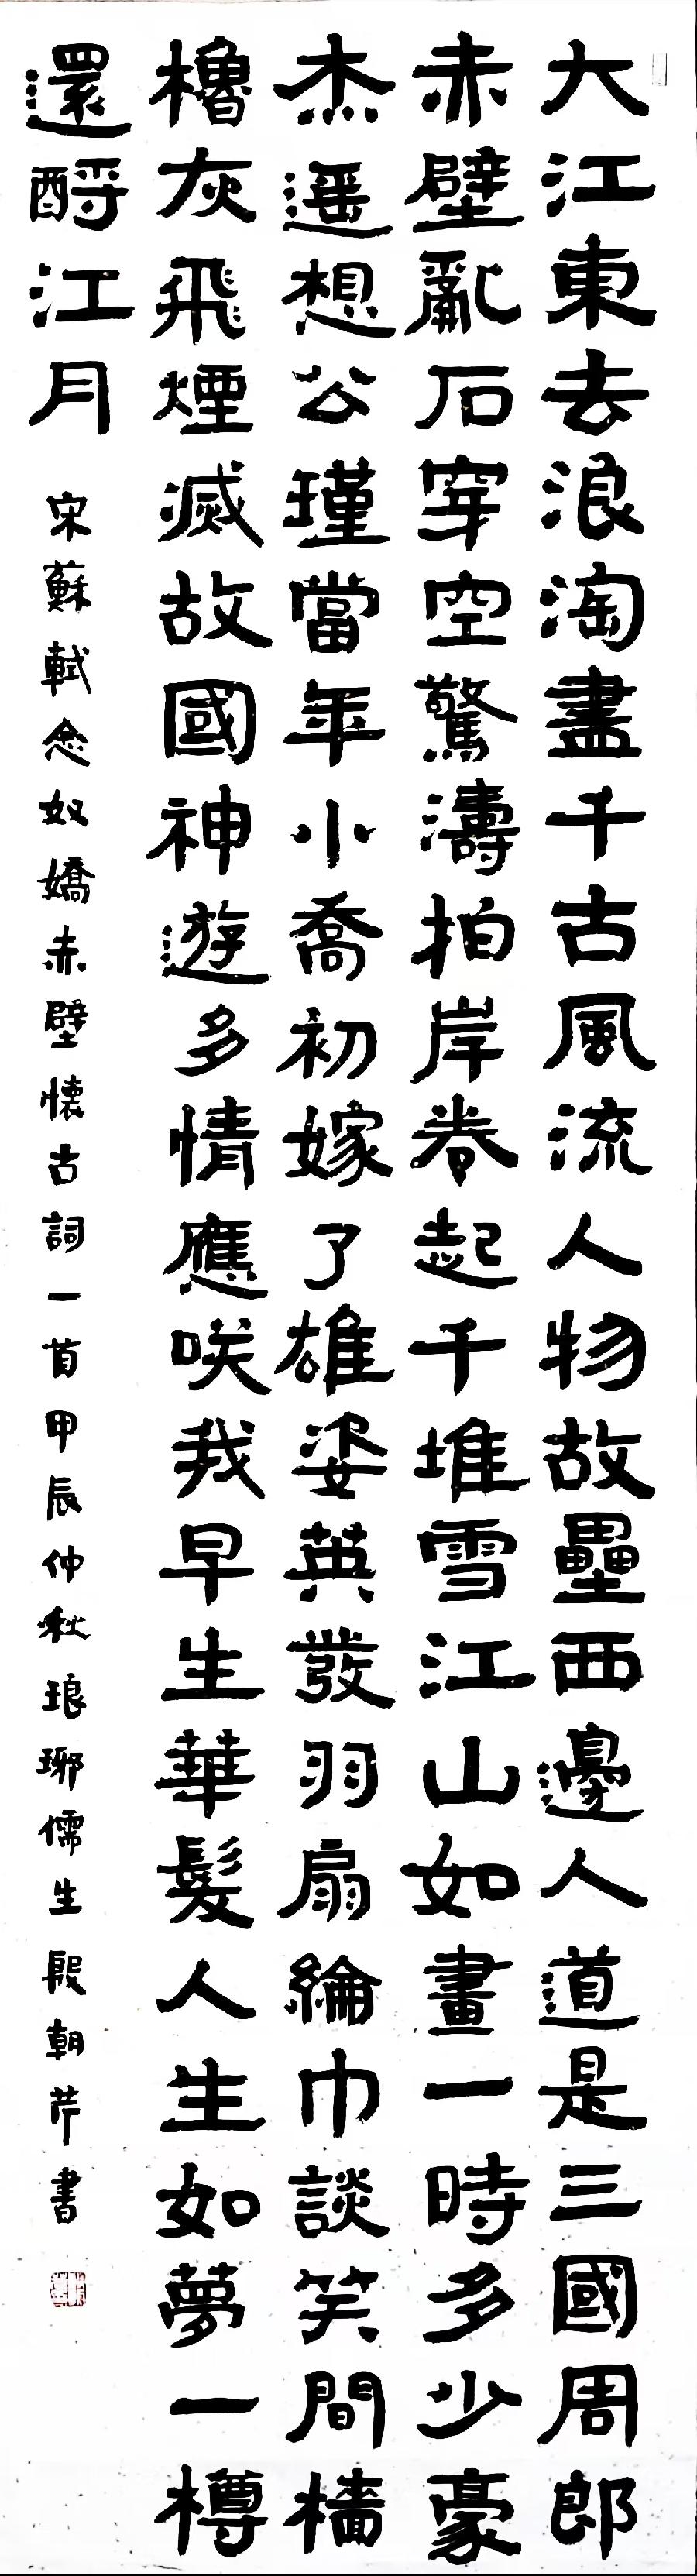 大江東去浪淘盡千古風流人物故壘西邊人道是三國周郎
赤壁亂石穿空驚濤拍岸卷起千堆雪江山如畫一時多少豪
杰遥想公瑾當年小喬初嫁了雄姿英發羽扇綸巾談笑間檣
櫓灰飛煙滅故國神遊多情應咲我早生華髮人生如夢一樽
還酹江月
宋蘇軾念奴嬌赤壁懷古詞一首甲辰仲秋琅琊儒生殷朝芹書